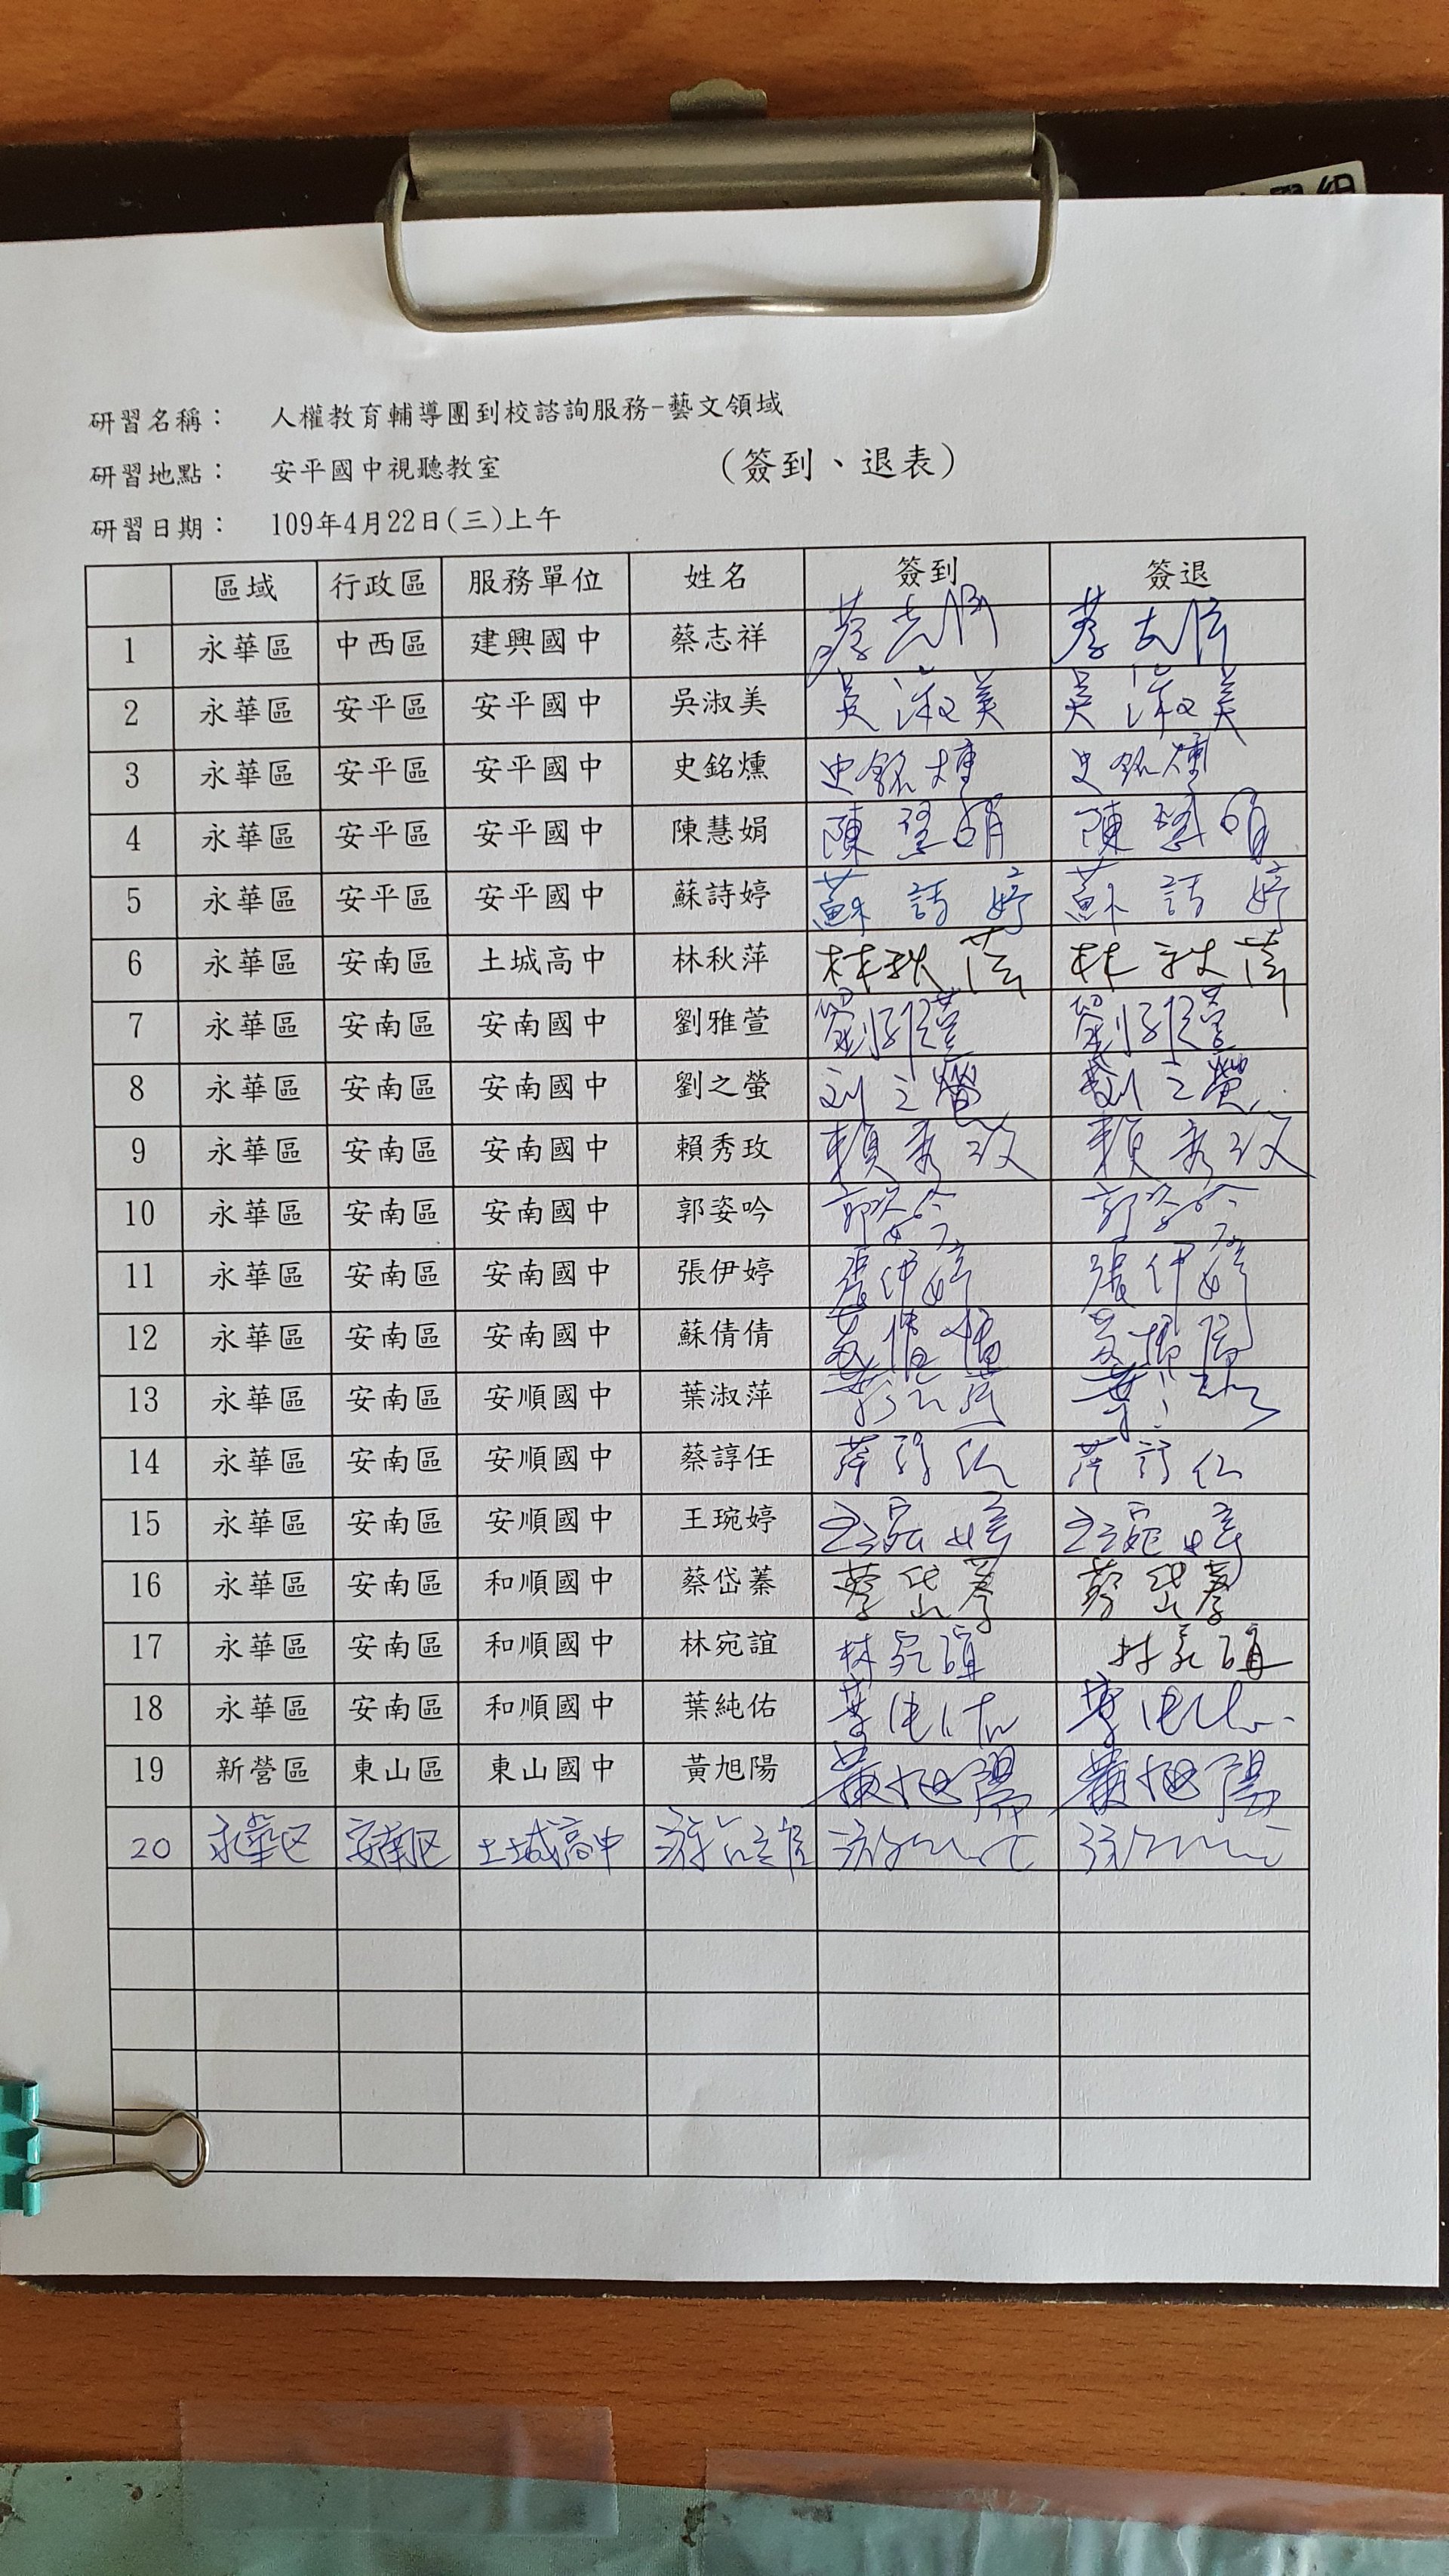 研習名稱： 人權教育輔導團到校諮詢服務-藝文領域
研習地點： 安平國中視聽教室 （簽到、退表）
研習日期： 109年4月22日(三)上午
區域 行政區 服務單位 姓名 簽到 簽退
1 永華區 中西區 建興國中 蔡志祥
2 永華區 安平區 安平國中 吳淑美 吳淑美 吳淑美
3 永華區 安平區 安平國中 史銘燻 史銘燻 史銘燻
4 永華區 安平區 安平國中 陳慧娟 陳慧娟 陳慧娟
5 永華區 安平區 安平國中 蘇詩婷 蘇詩婷 蘇詩婷
6 永華區 安南區 土城高中 林秋萍 林秋萍 林秋萍
7 永華區 安南區 安南國中 劉雅萱 劉雅萱 劉雅萱
8 永華區 安南區 安南國中 劉之螢 刘之螢 劉之螢
9 永華區 安南區 安南國中 賴秀玫 賴秀玫 賴秀玫
10 永華區 安南區 安南國中 郭姿吟 郭姿吟 郭姿吟
11 永華區 安南區 安南國中 張伊婷 張伊婷 張伊婷
12 永華區 安南區 安南國中 蘇倩倩
13 永華區 安南區 安順國中 葉淑萍
14 永華區 安南區 安順國中 蔡諄任
15 永華區 安南區 安順國中 王琬婷 王琬婷 王琬婷
16 永華區 安南區 和順國中 蔡岱蓁 蔡岱蓁 蔡岱蓁
17 永華區 安南區 和順國中 林宛誼 林宛誼 林宛誼
18 永華區 安南區 和順國中 葉純佑
19 新營區 東山區 東山國中 黃旭陽 黃旭陽 黃旭陽
20 永華区 安南区 土城高中